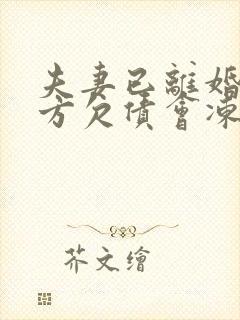 夫妻已離婚
方欠債會凍
芥文繪